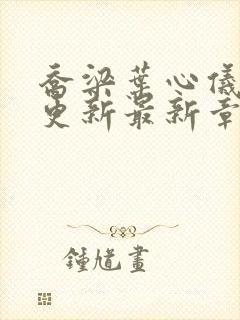 乔梁叶心仪
更新最新章
鍾馗畫